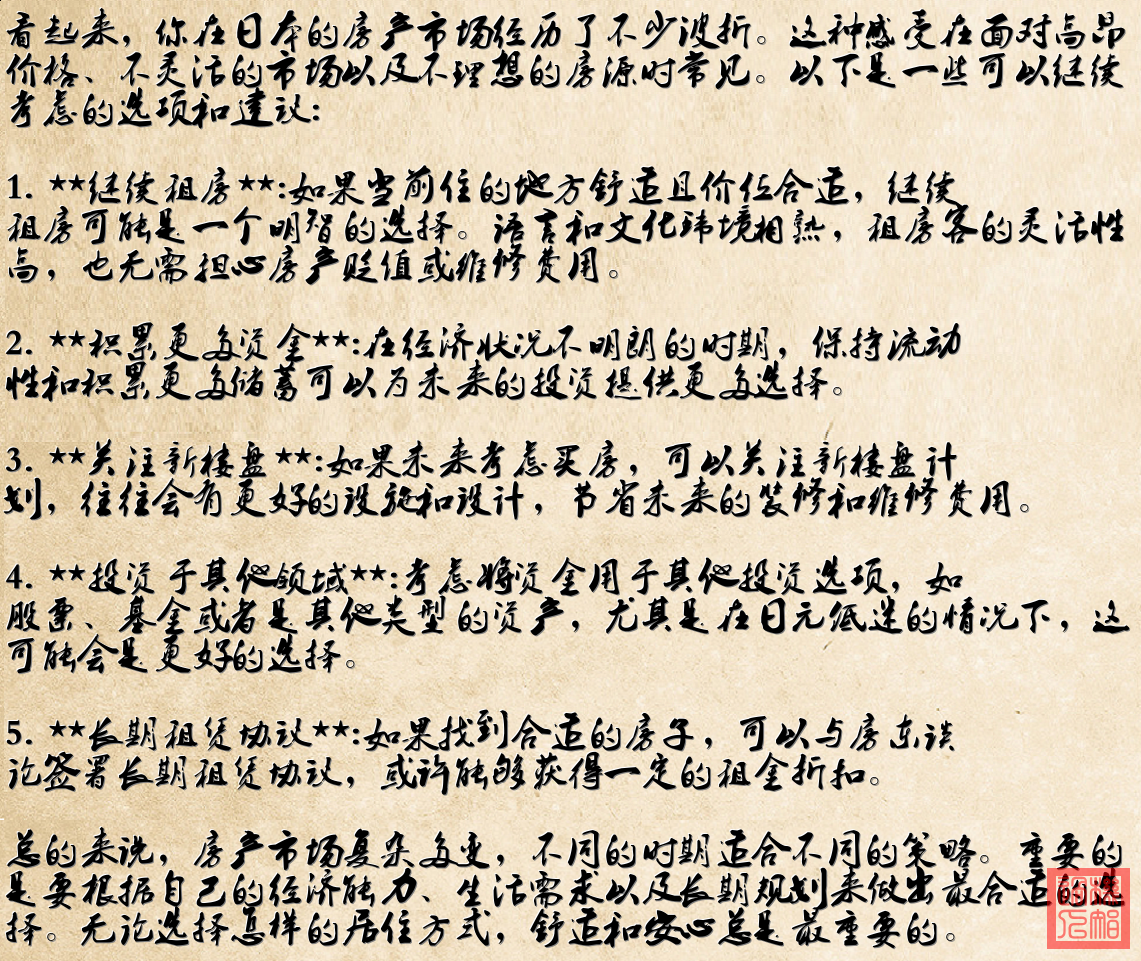 看起来，你在日本的房产市场经历了不少波折。这种感受在面对高昂
价格、不灵活的市场以及不理想的房源时常见。以下是一些可以继续
考虑的选项和建议:
1. **继续租房**:如果当前住的地方舒适且价位合适，继续
租房可能是一个明智的选择。语言和文化环境相熟，租房客的灵活性
高，也无需担心房产贬值或维修费用。
2. **积累更多资金**:在经济状况不明朗的时期，保持流动
性和积累更多储蓄可以为未来的投资提供更多选择。
3. **关注新楼盘**:如果未来考虑买房，可以关注新楼盘计
划，往往会有更好的设施和设计，节省未来的装修和维修费用。
4. **投资于其他领域**:考虑将资金用于其他投资选项，如
股票、基金或者是其他类型的资产，尤其是在日元低迷的情况下，这
可能会是更好的选择。
5. **长期租赁协议**:如果找到合适的房子，可以与房东谈
论签署长期租赁协议，或许能够获得一定的租金折扣。
总的来说，房产市场复杂多变，不同的时期适合不同的策略。重要的
是要根据自己的经济能力、生活需求以及长期规划来做出最合适的选
择。无论选择怎样的居住方式，舒适和安心总是最重要的。